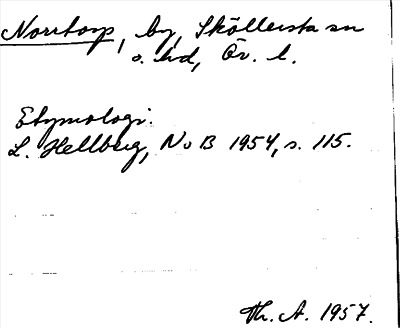 Norrtorp, by, Sköllersta sn
o. hd, Ör. l.
Etymologi:
L. Hellberg, NoB 1954, s. 115.
Th. A. 1957.